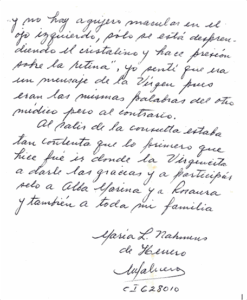 y no hay agujero macular en el
ojo izquierdo, sólo se está despren-
diendo el cristalino y hace presión
sobre la retina", yo sentí que era
un mensaje de la Virgen pues
eran las mismas palabras del otro
médico pero al contrario.
Al salir de la consulta estaba
tan contenta que lo primero que
hice fué ir donde la Virgencita
a darle las gracias y a participár
selo a Alba Marina y a Rosaura
y también a toda mi familia
María L.
de Herrero
CI 628010